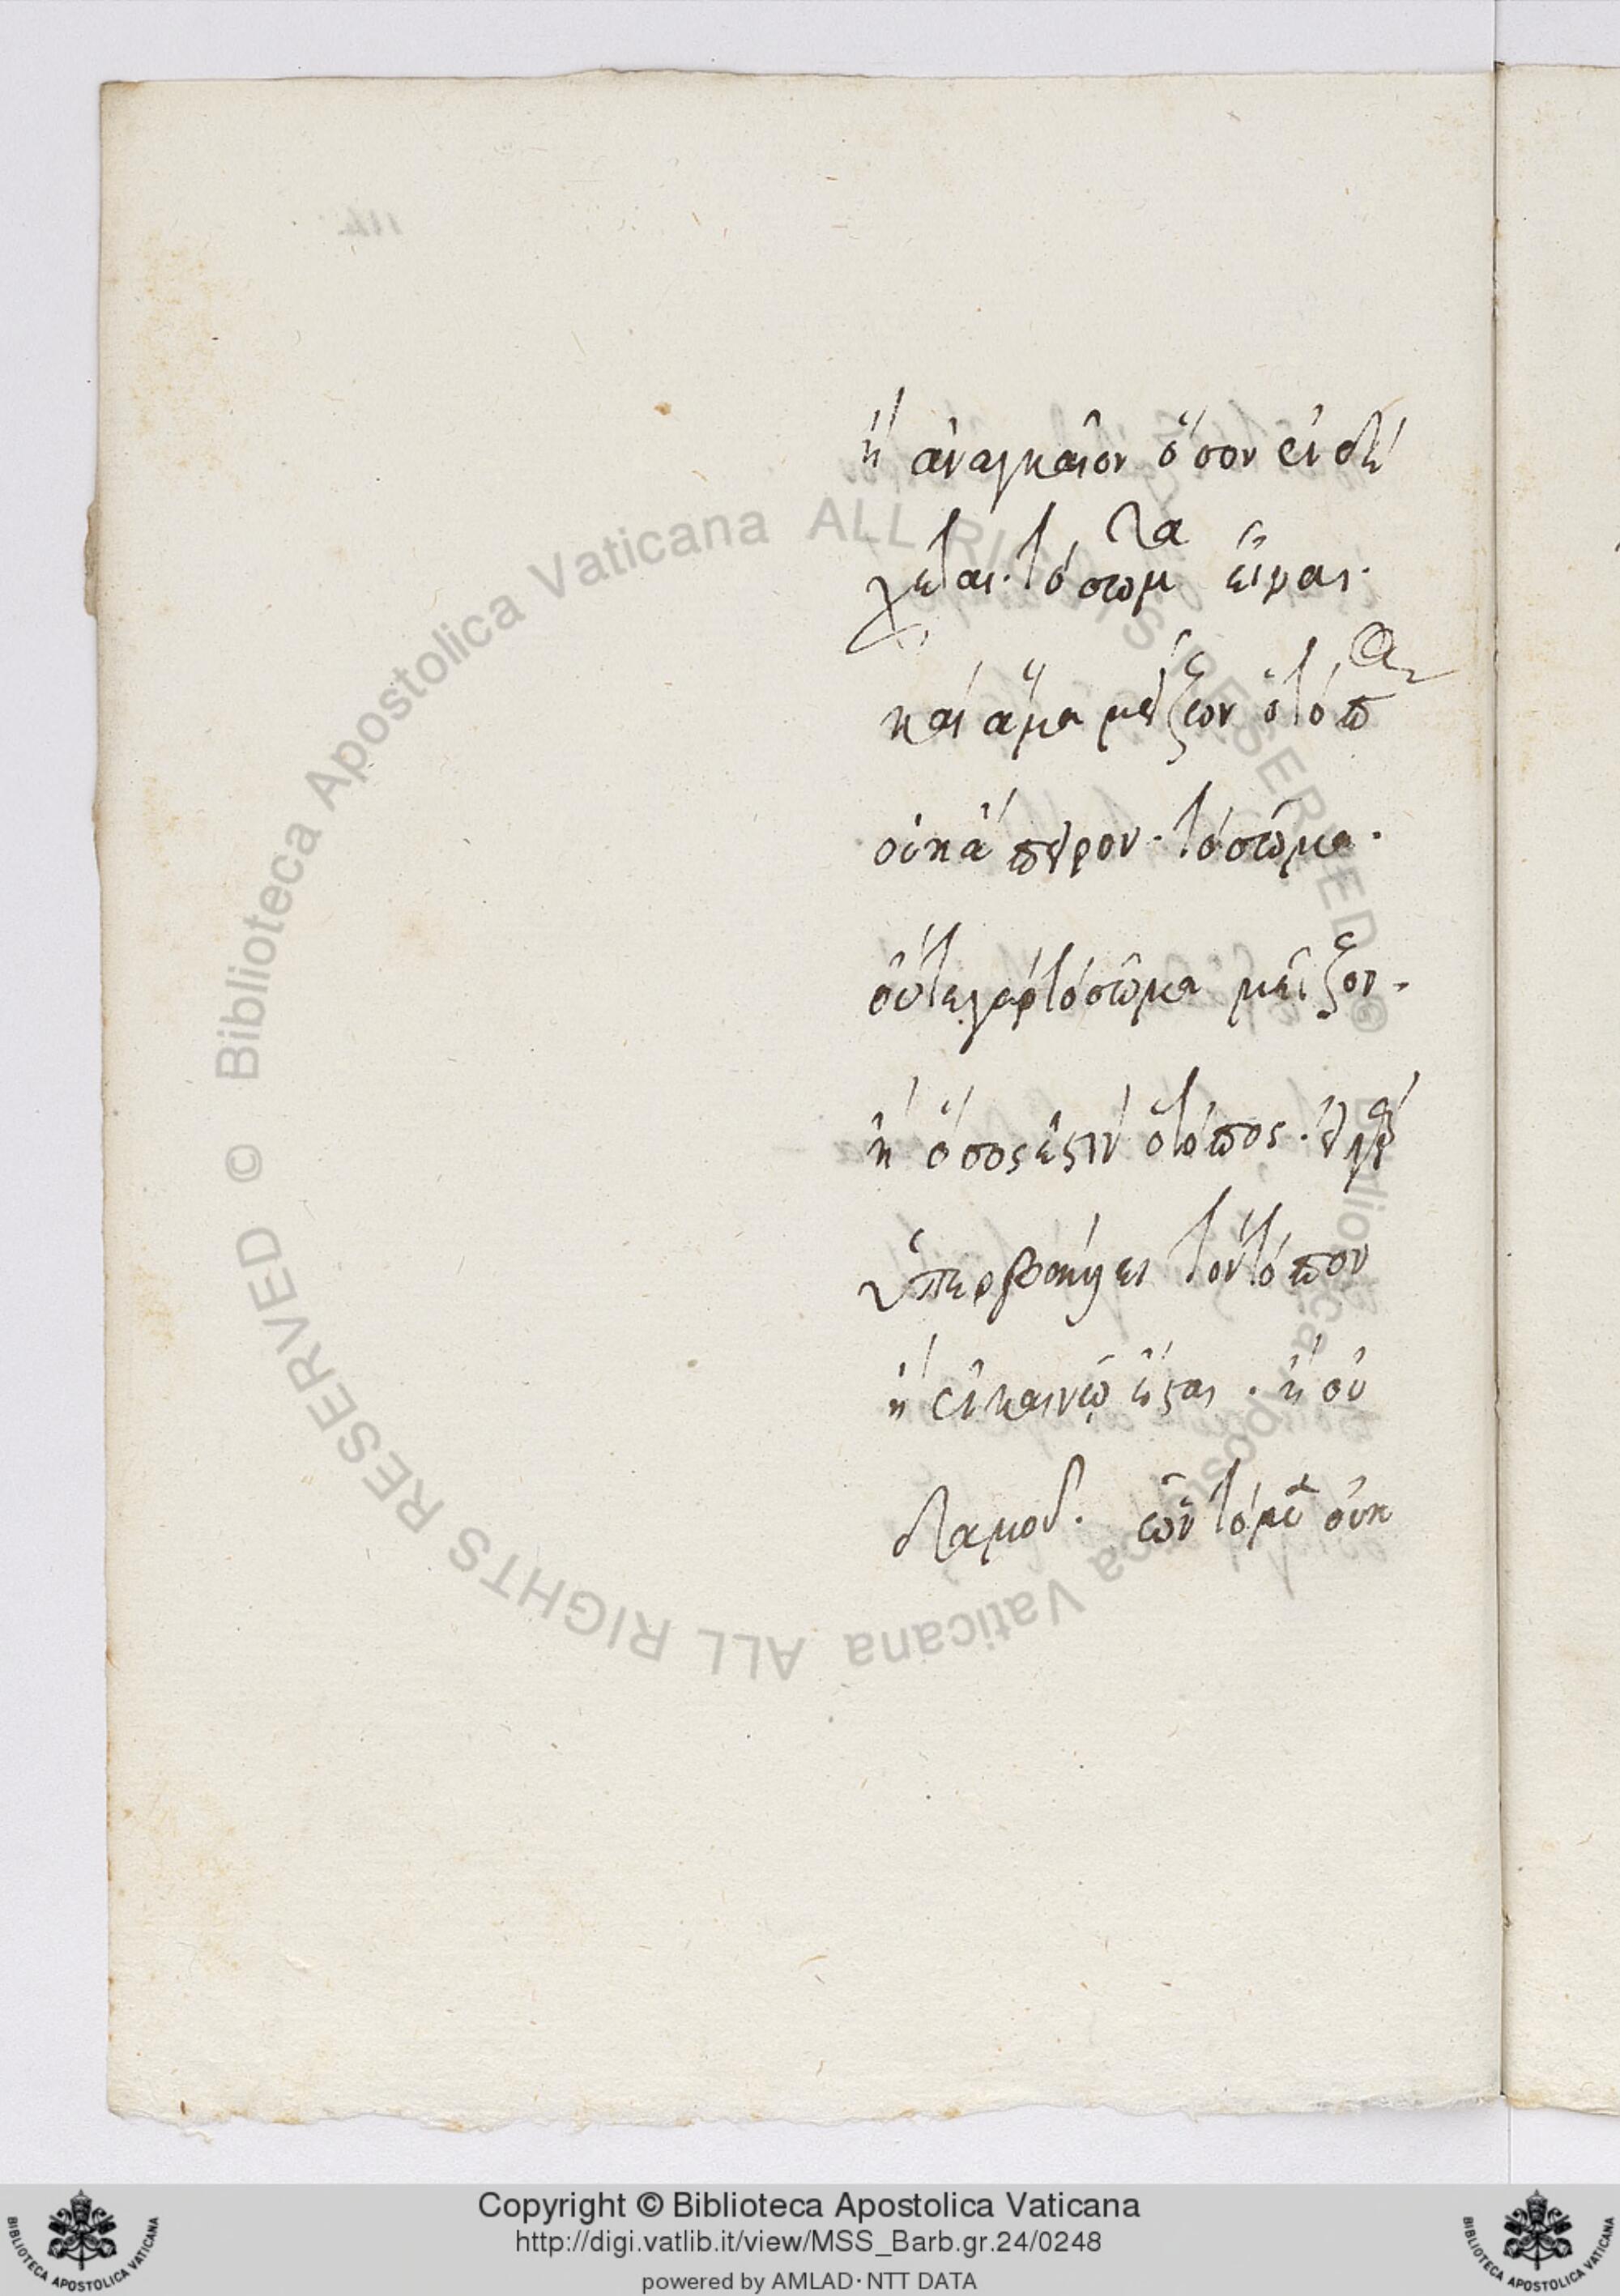 ἢ ἀναγκαῖον ὅσον ἐνδέ
χεται· τὸ σῶμα εἶναι·
καὶ ἅμα μεῖζον ὁ τόπ
οὐκ ἄπειρον· τὸ σῶμα·
οὔτε γὰρ τὸ σῶμα μεῖζον·
ἢ ὅσος ἐστὶν ὁ τόπος·
τὸν τόπον
ἢ ἐν κενῷ ἔσται· ἢ οὐ
δαμοῦ· οὐκ
Copyright © Biblioteca Apostolica Vaticana
http://digi.vatlib.it/view/MSS_Barb.gr.24/0248
powered by AMLAD·NTT DATA
© Biblioteca Apostolica Vaticana ALL RIGHTS RESERVED
© Biblioteca Apostolica Vaticana ALL RIGHTS RESERVED
BIBLIOTECA APOSTOLICA VATICANA
BIBLIOTECA APOSTOLICA VATICANA